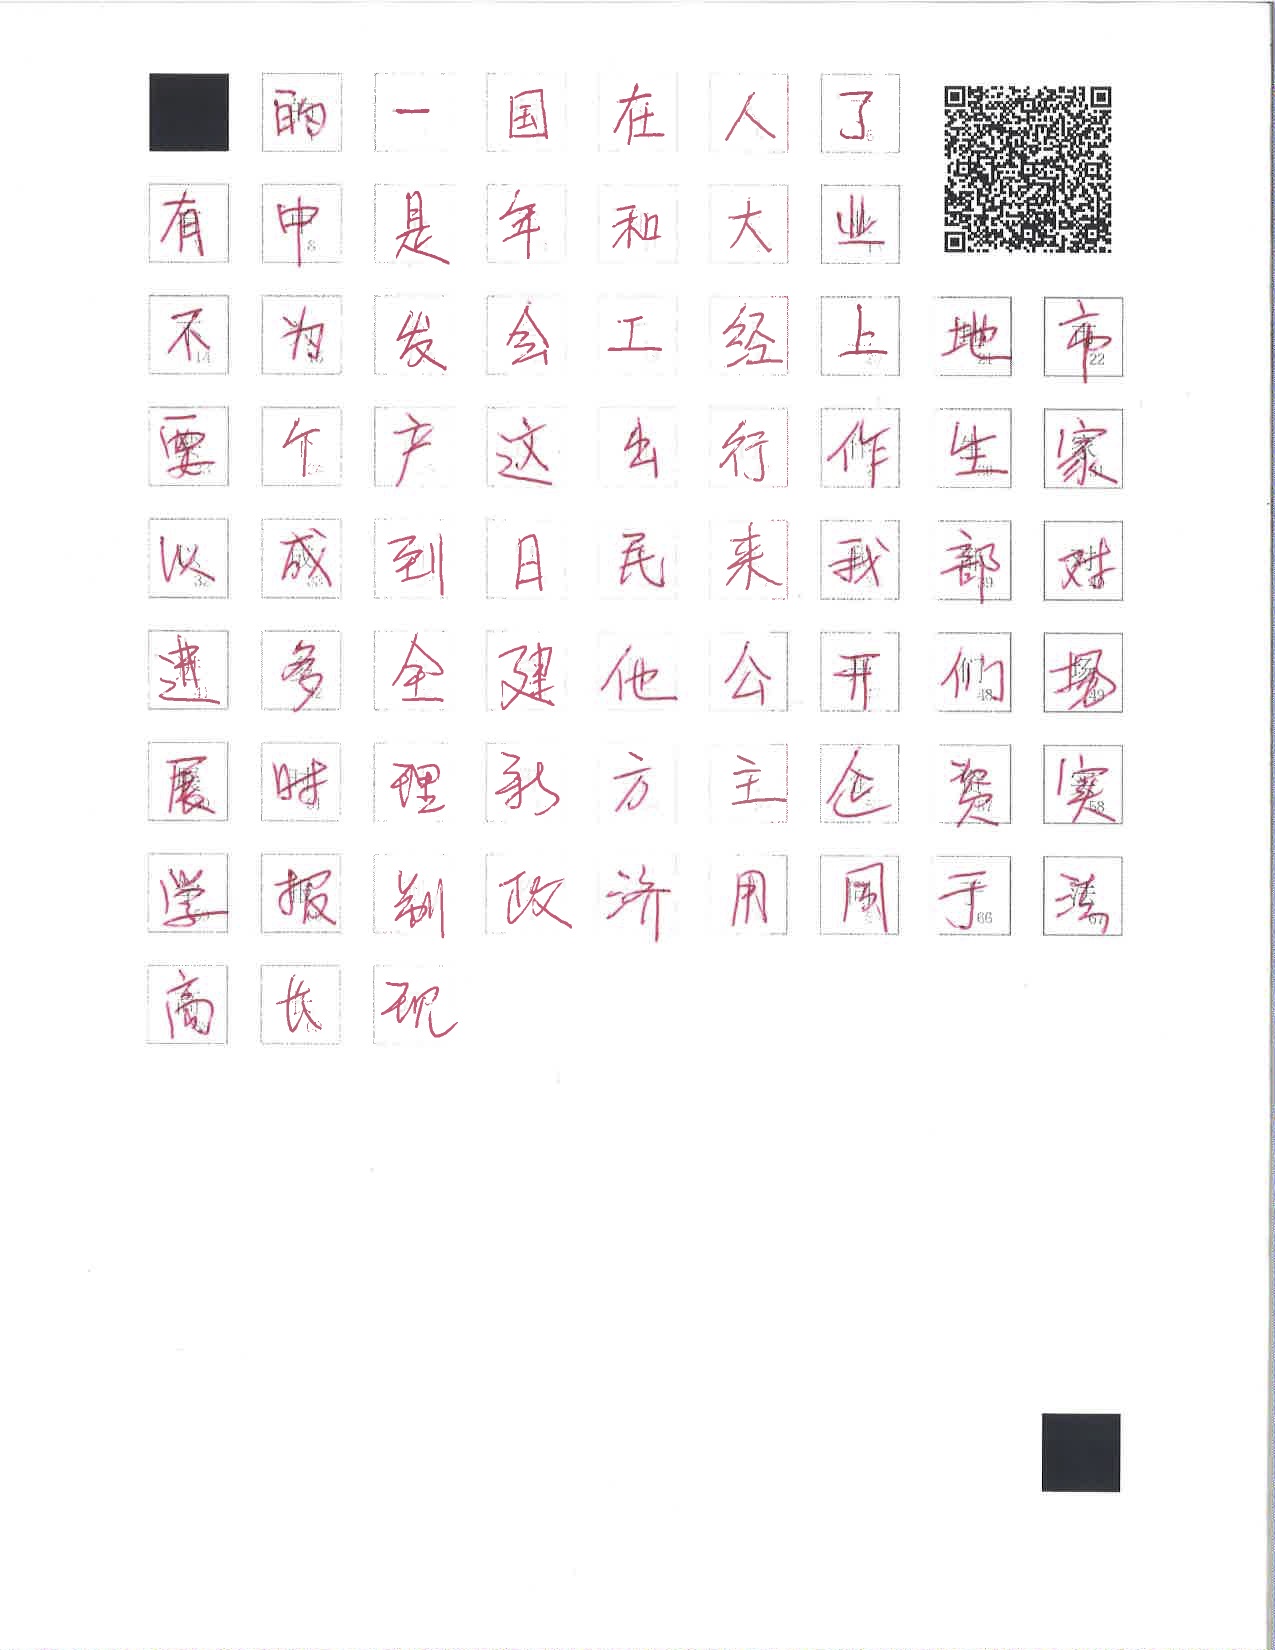 的一国在人了
有中是年和大业
不为发会工经上地市
要个产这出行作生家
以成到日民来我部对
进多全建他公开们场
展时理新方主企资实
学报制政济用同于法
高长现